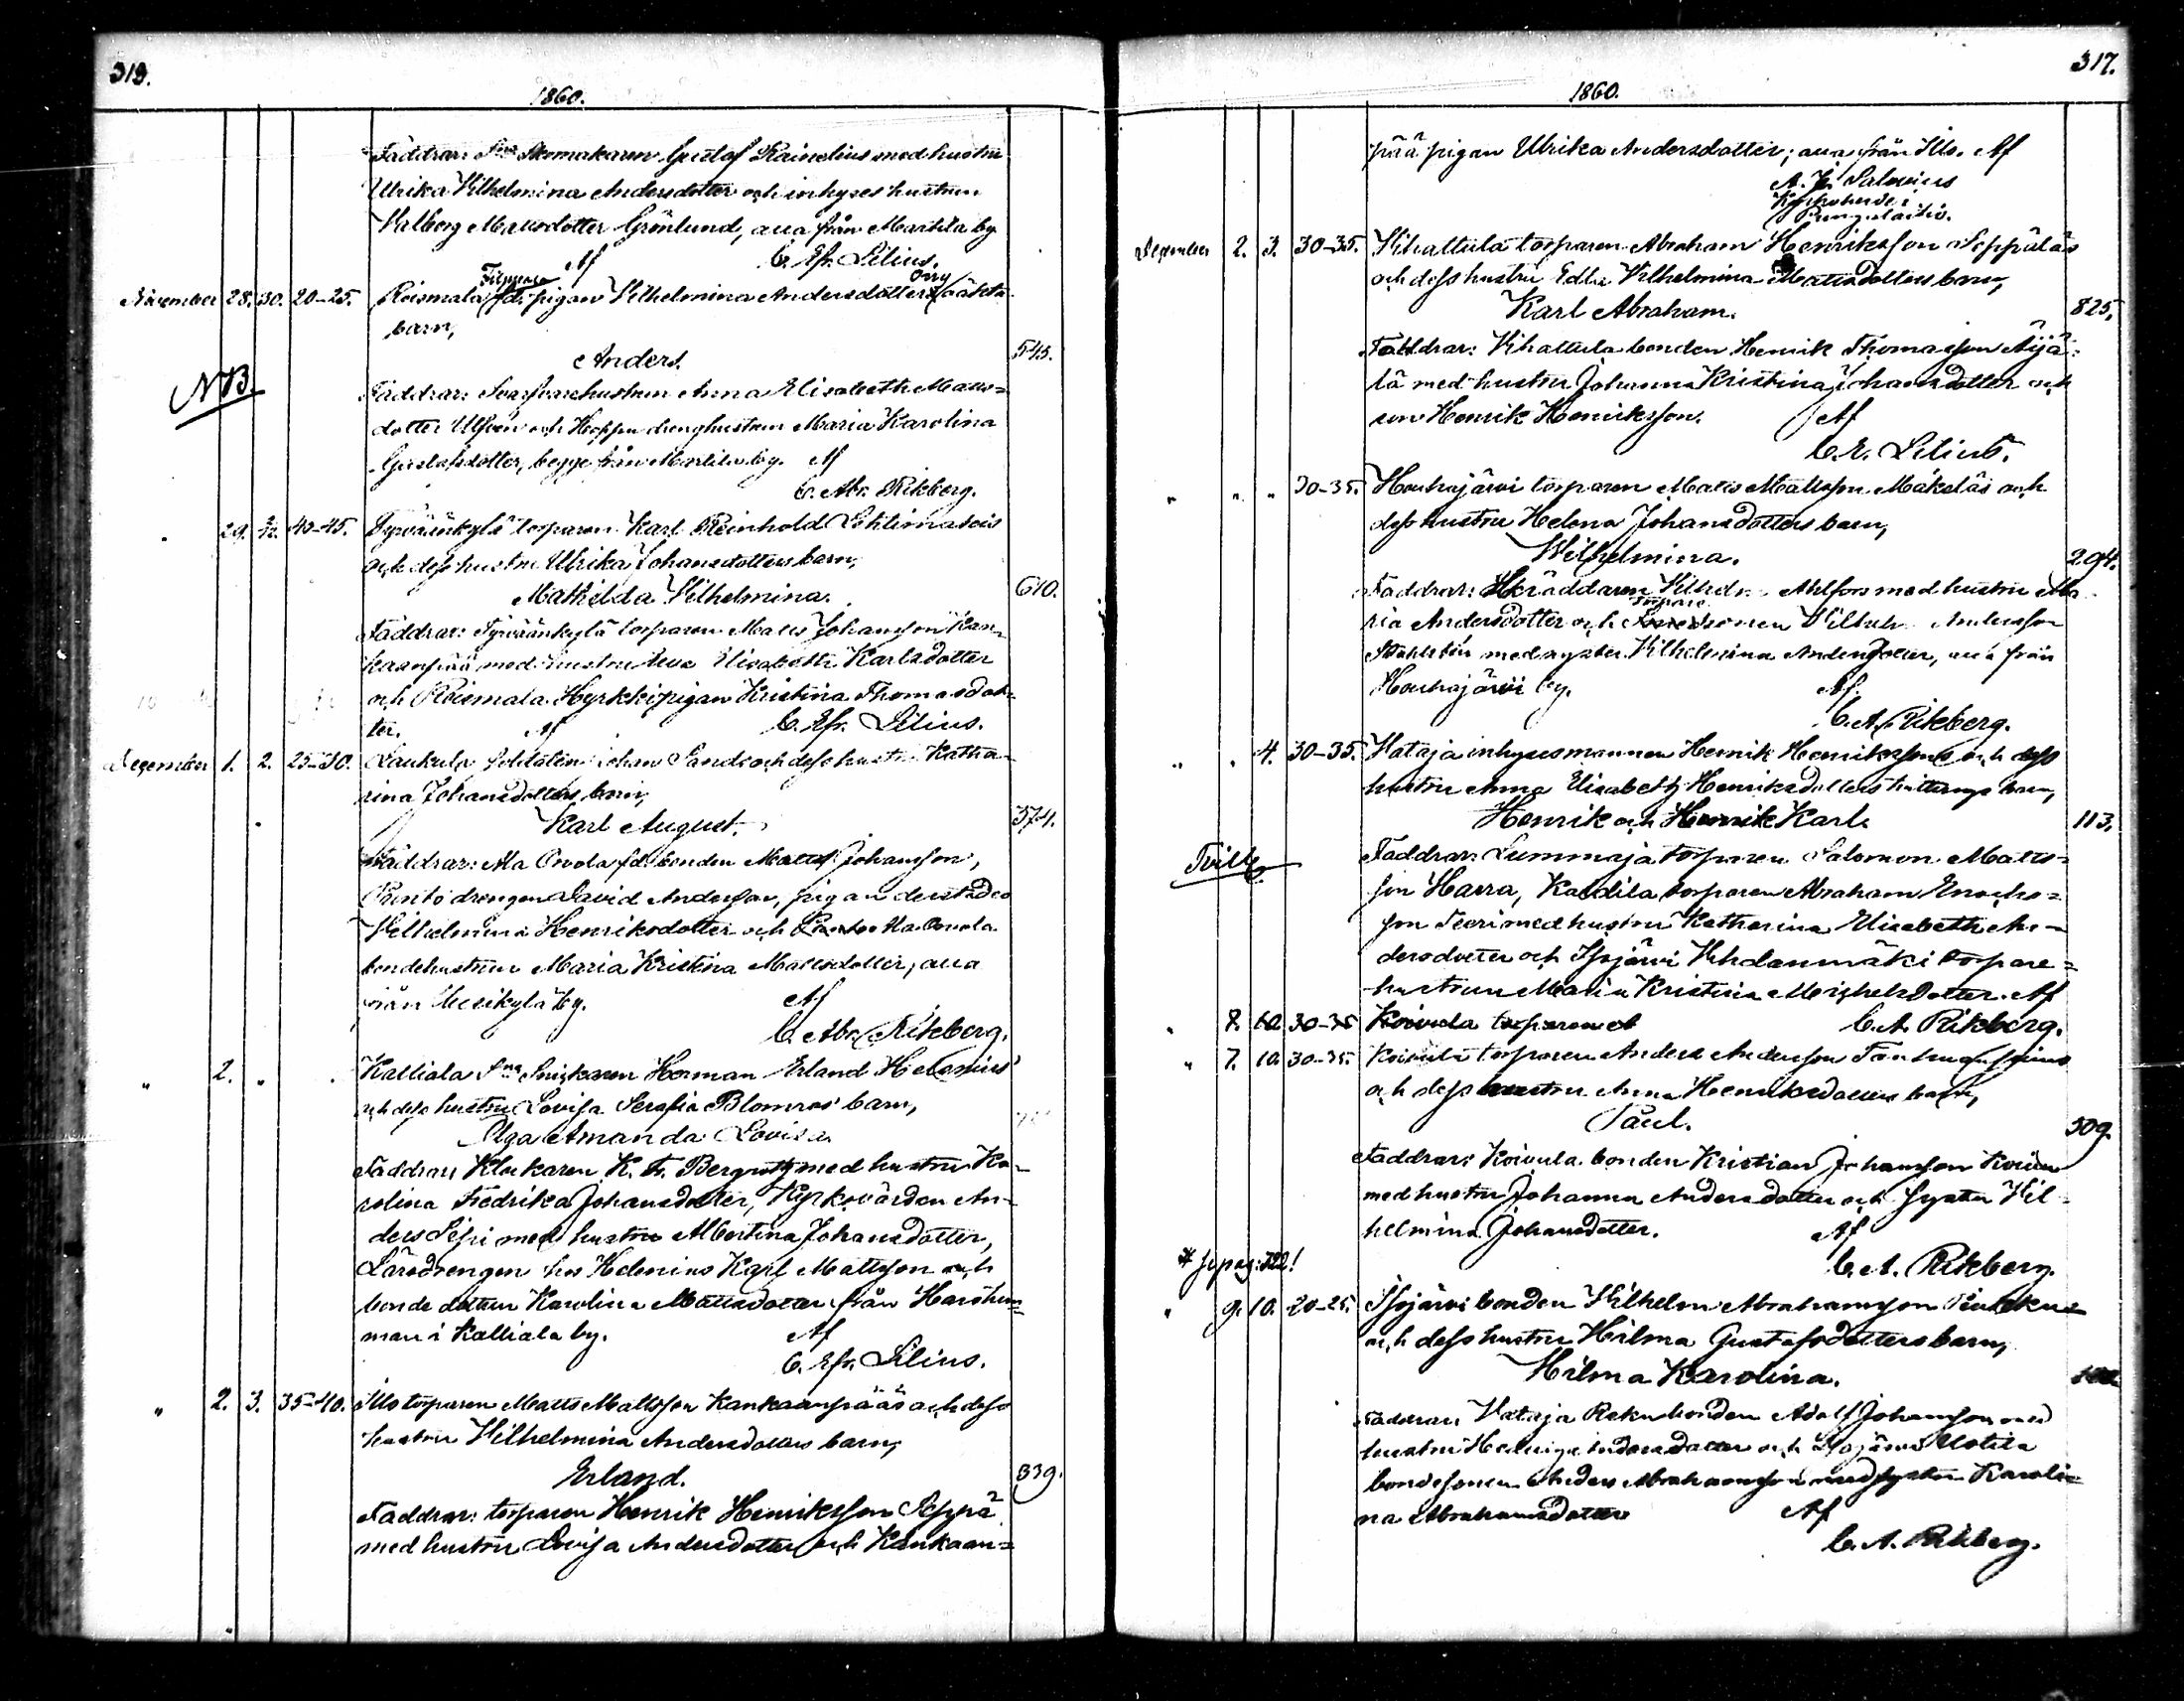 319.
1860.
Faddrar: Sne Skomakaren Gustaf Rainelius med hustru
Ulrika Vilhelmina Andersdotter och inhyses hustrun
Valborg Mattsdotter Grönlund, alla från Marttila by
Af C. Efr. Lilius.
November 28. 30. 20-25. Roismala fd. pigan Vilhelmina Andersdotters oäkta
barn,
Anders. 545.
NB.
Faddrar: Svarfvarehustrun Anna Elisabeth Matts=
dotter Ulfvén och Hoppu drenghustrun Maria Karolina
Gustafsdotter, begge från Marttila by. Af
C. Abr. Rikberg.
" 29. 40-45. Tyrväänkylä torparen Karl Reinhold
och dess hustru Ulrika Johansdotters barn,
Mathilda Vilhelmina. 610.
Faddrar: Tyrväänkylä torparen Matts Johansson Kan=
kaanpää med hustru Eva Elisabeth Karlsdotter
och Roismala Hyrkki pigan Kristina Thomasdot=
ter. Af C. Efr. Lilius.
December 1. 2. 25-30. Laukula soldaten Johan Sand och dess hustru Katha=
rina Johansdotters barn,
Karl August. 374.
Faddrar: Ala Onola fd bonden Matts Johansson,
drengen David Andersson, pigan derstädes
Vilhelmina Henriksdotter och Ala Onola
bondehustrun Maria Kristina Mattsdotter, alla
från by. Af
C. Abr. Rikberg.
" 2. " Kalliala Sne Snickaren Herman Erland Helenius'
och dess hustru Lovisa Serafia Blomros' barn,
Olga Amanda Lovisa.
Faddrar: Klockaren K. Fr. Bergroth med hustru Ka=
rolina Fredrika Johansdotter, Kyrkovärden An=
ders Sipi med hustru Albertina Johansdotter,
Lärodrengen hos Helenius Karl Mattsson och
bonde dottern Karolina Mattsdotter från
man i Kalliala by. Af
C. Efr. Lilius.
" 2. 3. 35-40. Illo torparen Matts Mattsson Kankaanpääs och dess
hustru Vilhelmina Andersdotters barn,
Erland. 339.
Faddrar: torparen Henrik Henriksson Seppä
med hustru Lovisa Andersdotter och Kankaan=
317.
1860.
pää pigan Ulrika Andersdotter; alla från Illo. Af
A. J. Salovius
Kyrkoherde i
Pungalaitio.
December 2. 3. 30-35. Vihattula torparen Abraham Henriksson Seppäläs
och dess hustru Edla Vilhelmina Mattsdotters barn,
Karl Abraham. 825.
Faddrar: Vihattula bonden Henrik Thomasson Äijä=
lä med hustru Johanna Kristina Johansdotter och
son Henrik Henriksson. Af
C. E. Lilius.
" " " 30-35. Houhajärvi torparen Matts Mattsson Mäkeläs och
dess hustru Helena Johansdotters barn,
Wilhelmina. 294.
Faddrar: Skräddaren Vilhelm Ahlfors med hustru Ma
ria Andersdotter och Torpare sonen Vilhelm Andersson
med syster Vilhelmina Andersdotter, alla från
Houhajärvi by. Af
C. A. Rikberg.
" " 4. 30-35. Vataja inhysesmannen Henrik Henrikssons och dess
hustru Anna Elisabeth Henriksdotters tvillings barn,
Henrik och Henrik Karl. 113.
Tvill.
Faddrar: Lummaja torparen Salomon Matts=
son Harra, Kaldila torparen Abraham Enochs=
son Teeri med hustru Katharina Elisabeth An=
dersdotter och Isojärvi Uhdanmäki torpare=
hustrun Maria Kristina Michelsdotter. Af
" 7. 10. 30-35 Koivula torparen A C. A. Rikberg.
" 7. 10. 30-35. Koivula torparen Anders Andersson
och dess hustru Anna Henriksdotters barn,
Paul. 309.
Faddrar: Koivula bonden Kristian Johansson
med hustru Johanna Andersdotter och syster Vil=
helmina Johansdotter. Af
* se pag: 322! C. A. Rikberg.
" 9. 10. 20-25. Isojärvi bonden Vilhelm Abrahamsson
och dess hustru Hilma Gustafsdotters barn,
Hilma Karolina.
Faddrar: Vataja Reku bonden Adolf Johansson med
hustru Hedvig Andersdotter och Isojärvi Uotila
bondesonen Anders Abrahamsson med syster Karoli=
na Abrahamsdotter Af
C. A. Rikberg.